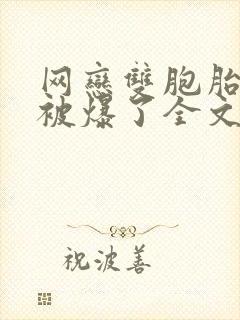 网戀雙胞胎
被爆了全文
祝波善